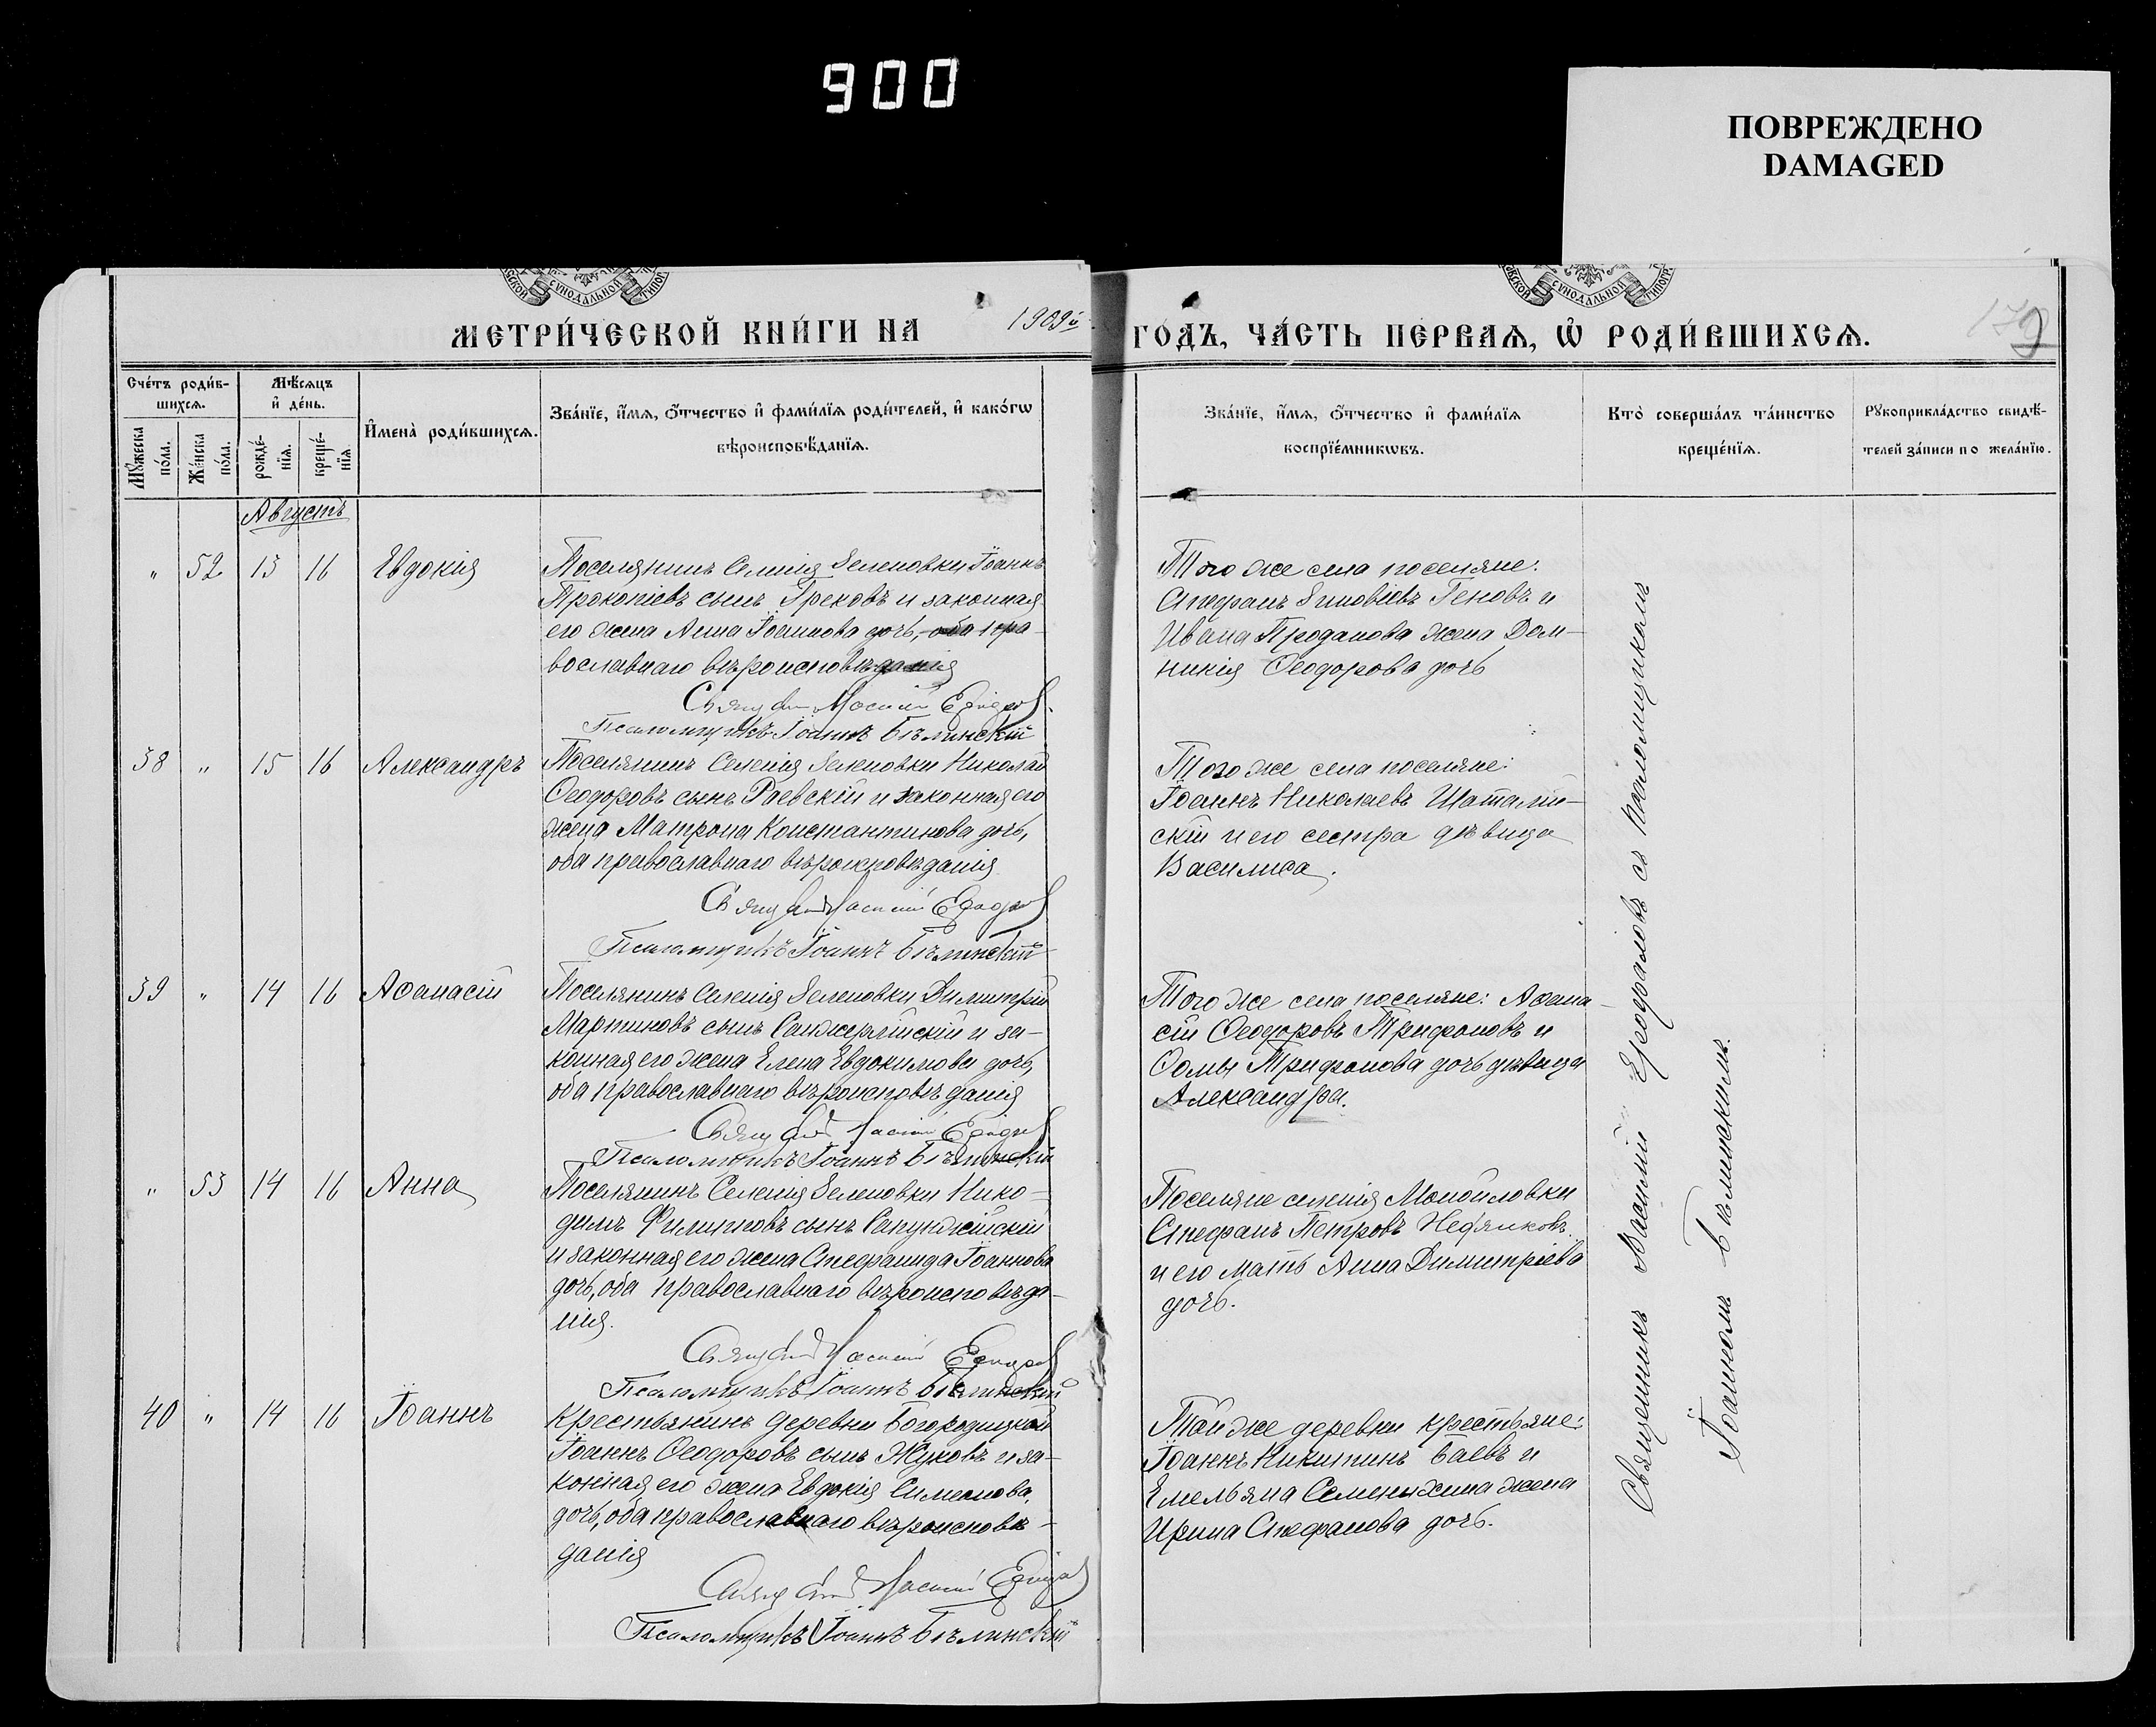 900
ПОВРЕЖДЕНО
DAMAGED
СѴНОДАЛЬНОЙ
СѴНОДАЛЬНОЙ
МЕТРИ́ЧЕСКОЙ КНИ́ГИ НА 1909й ГО́ДЪ, ЧА́СТЬ ПЕРВАѦ, Ѡ҆ РОДИ́ВШИХСѦ.
Сче́тъ роди́в-
шихсѧ.
Мѣ́сѧцъ
и҆ де́нь.
Мꙋ́жеска
по́ла.
Же́нска
по́ла.
рожде́-
нїѧ.
креще́-
нїѧ.
И҆мена̀ роди́вшихсѧ.
Зва́нїе, и҆́мѧ, ѻ҆́тчество и҆ фами́лїѧ роди́телей, и҆ како́гѡ
вѣроисповѣ́данїѧ.
Зва́нїе, и҆́мѧ, ѻ҆́тчество и҆ фами́лїѧ
воспрїе́мникѡвъ.
Кто̀ соверша́лъ та́инство
креще́нїѧ.
Рꙋкоприкла́дство свидѣ́-
телей за́писи по жела́нїю.
Августъ
„ 52 13 16 Евдокія
Поселянинъ Селенія Зеленовки Іоаннъ
Прокопіевъ сынъ Грековъ и законная
его жена Анна Іоаннова дочь, оба пра-
вославнаго вѣроисповѣданія
Священникъ Василій
Псаломщикъ Іоаннъ Бѣлинскій
Того же села поселяне:
Стефанъ Зиновіевъ Геновъ и
Ивана Проданова жена Дом-
никія Ѳеодорова дочь
38 „ 15 16 Александръ
Поселянинъ Селенія Зеленовки Николай
Ѳеодоровъ сынъ Раевскій и законная его
жена Матрона Константинова дочь,
оба православнаго вѣроисповѣданія
Священникъ Василій
Псаломщикъ Іоаннъ Бѣлинскій
Того же села поселяне:
Іоаннъ Николаевъ Шатали-
скій и его сестра дѣвица
Василиса.
39 „ 14 16 Аѳанасій
Поселянинъ Селенія Зеленовки Димитрій
Мартиновъ сынъ Санжерлійскій и за-
конная его жена Елена Евдокимова дочь,
оба православнаго вѣроисповѣданія
Священникъ Василій
Псаломщикъ Іоаннъ Бѣлинскій
Того же села поселяне: Аѳана-
сій Ѳеодоровъ Трифоновъ и
Ѳомы Трифонова дочь дѣвица
Александра.
„ 53 14 16 Анна
Поселянинъ Селенія Зеленовки Нико-
димъ Филипповъ сынъ Сапунжійскій
и законная его жена Стефанида Іоаннова
дочь, оба православнаго вѣроисповѣда-
нія.
Священникъ Василій
Псаломщикъ Іоаннъ Бѣлинскій
Поселяне селенія Мануиловки
Стефанъ Петровъ
и его мать Анна Димитріева
дочь.
40 „ 14 16 Іоаннъ
Крестьянинъ деревни Богородицкой
Іоаннъ Ѳеодоровъ сынъ Жуковъ и за-
конная его жена Евдокія Симеонова
дочь, оба православнаго вѣроисповѣ-
данія
Священникъ Василій
Псаломщикъ Іоаннъ Бѣлинскій
Той же деревни крестьяне:
Іоаннъ Никитинъ Баевъ и
Емельяна Семенихина жена
Ирина Стефанова дочь.
Священникъ Василій съ псаломщикомъ
Іоанномъ Бѣлинскимъ.